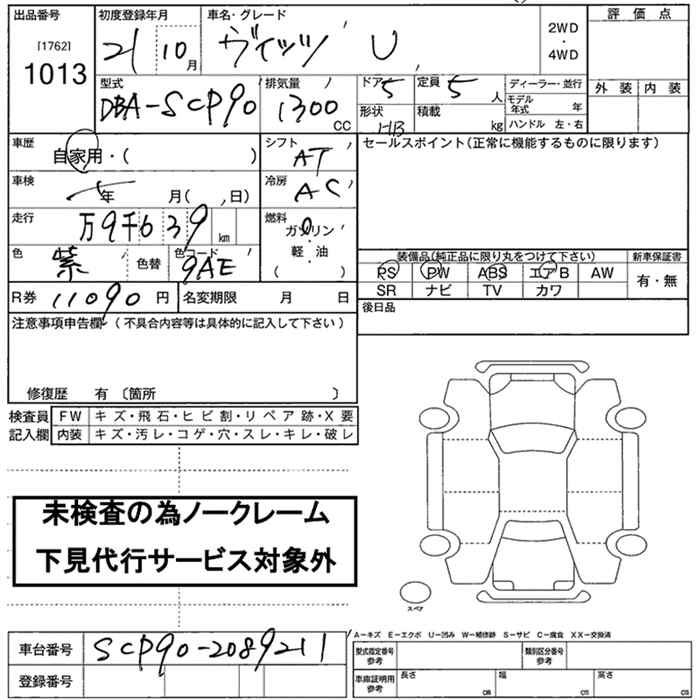 出品番号 初度登録年月 車名・グレード 評価点
[1762] 1013 21 10 月 ヴィッツ U 2WD・4WD
型式 排気量 ドア 5 定員 5 人 ディーラー・並行 外装 内装
DBA-SCP90 1300 CC 形状 HB 積載 kg モデル年式 年
ハンドル 左・右
車歴 自家用・( ) シフト AT セールスポイント(正常に機能するものに限ります)
車検 年 月( 、日) 冷房 AC
走行 万9千639 km 燃料 ガソリン・軽・油 ( )
色 紫 色替 色コード 9AE 装備品(純正品に限り丸をつけて下さい) 新車保証書
PS PW ABS エアB AW 有・無
SR ナビ TV カワ
R券 11090 円 名変期限 月 日 後日品
注意事項申告欄(不具合内容等は具体的に記入して下さい)
修復歴 有 〔箇所 〕
検査員 FW キズ・飛石・ヒビ割・リペア跡・X要
記入欄 内装 キズ・汚レ・コゲ・穴・スレ・キレ・破レ
未検査の為ノークレーム
下見代行サービス対象外
スペア
A−キズ E−エクボ U−凹み W−補修跡 S−サビ C−腐食 XX−交換済
車台番号 SCP90-2089211 型式指定番号 参考 類別区分番号 参考
登録番号 車庫証明用 参考 長さ cm 幅 cm 高さ cm